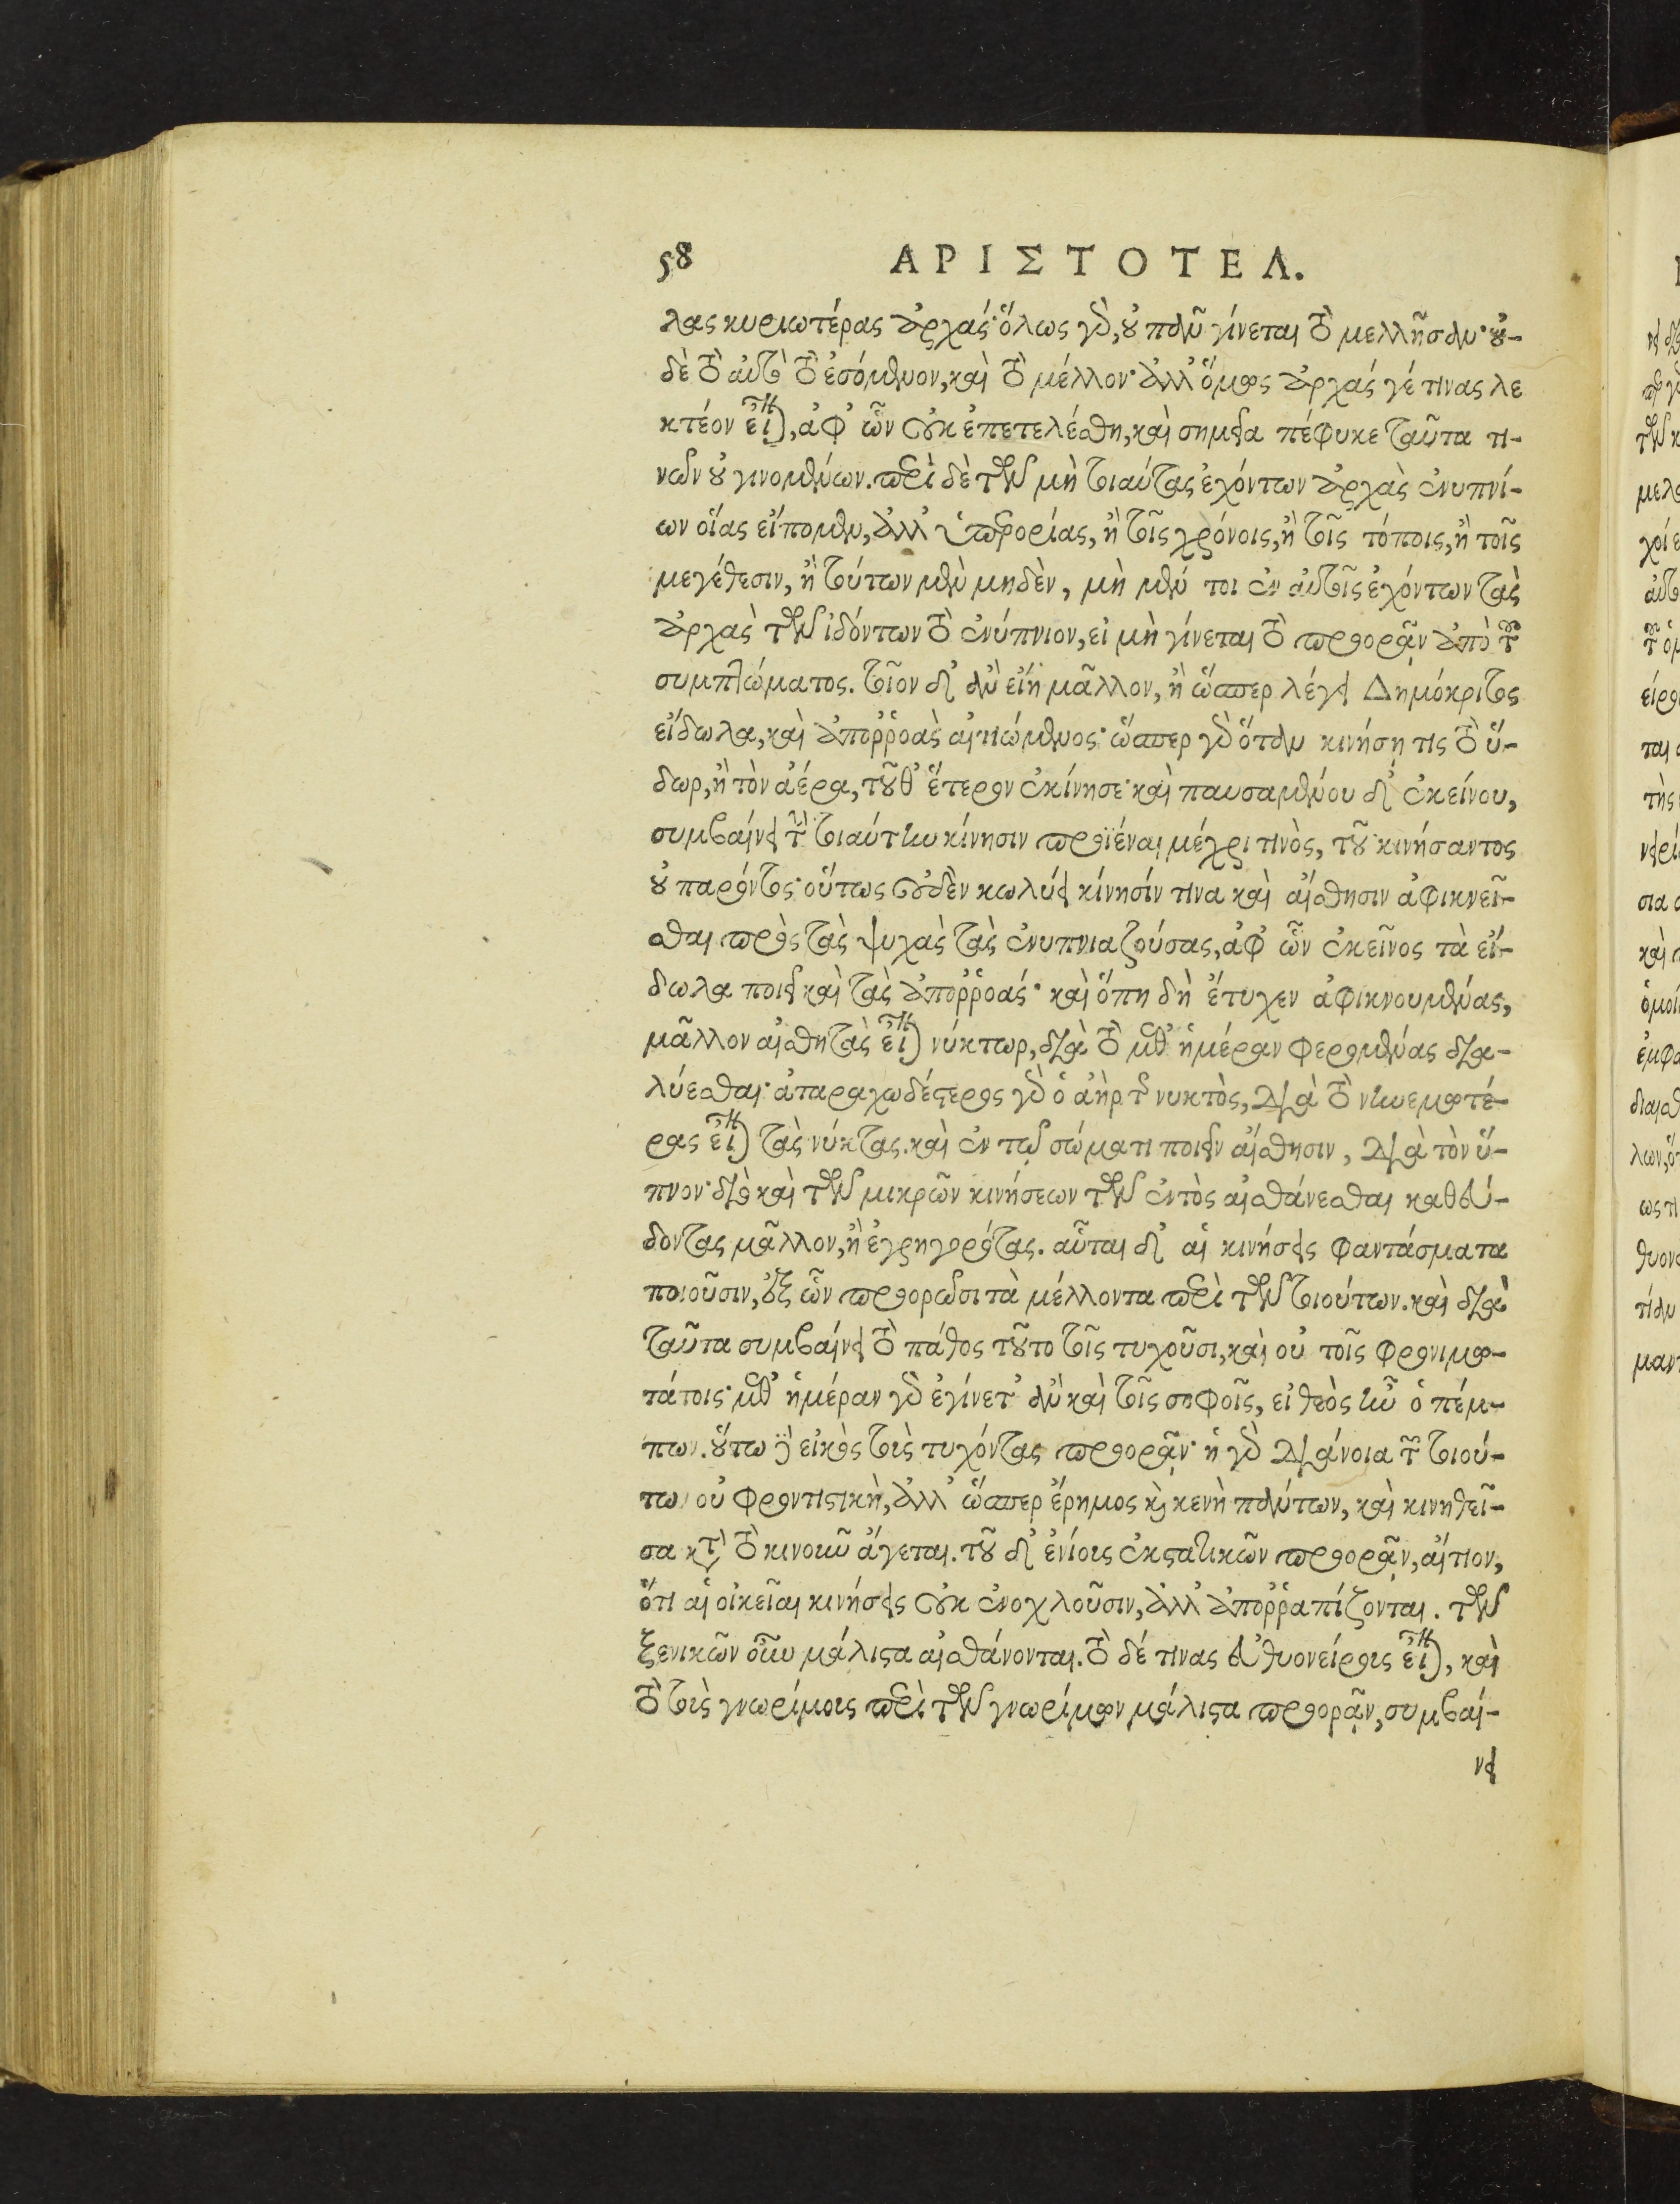 58 ΑΡΙΣΤΟΤΕΛ.
λας κυριωτέρας ἀρχάς· ὅλως γὸ, οὐ πᾶν γίνεται τὸ μελλῆσαν· οὐ-
δὲ τὸ αὐτὸ τὸ ἐσόμενον, καὶ τὸ μέλλον· ἀλλ' ὅμως ἀρχάς γέ τινας λε
κτέον εἶναι, ἀφ' ὧν οὐκ ἐπετελέσθη, καὶ σημεῖα πέφυκε ταῦτα τι-
νῶν οὐ γινομένων. περὶ δὲ τῶν μὴ τοιαύτας ἐχόντων ἀρχὰς ἐνυπνί-
ων οἵας εἴπομεν, ἀλλ' ὑπερορίας, ἢ τοῖς χρόνοις, ἢ τοῖς τόποις, ἢ τοῖς
μεγέθεσιν, ἢ τούτων μὲν μηδὲν, μὴ μέν τοι ἐν αὐτοῖς ἐχόντων τὰς
ἀρχὰς τῶν ἰδόντων τὸ ἐνύπνιον, εἰ μὴ γίνεται τὸ προορᾷν ἀπὸ τοῦ
συμπτώματος. τοῖον δ' ἂν εἴη μᾶλλον, ἢ ὥσπερ λέγει Δημόκριτος
εἴδωλα, καὶ ἀποῤῥοὰς αἰτιώμενος· ὥσπερ γὸ ὅταν κινήσῃ τις τὸ ὕ-
δωρ, ἢ τὸν ἀέρα, τοῦθ' ἕτερον ἐκίνησε· καὶ παυσαμένου δ' ἐκείνου,
συμβαίνει τὴν τοιαύτην κίνησιν προϊέναι μέχρι τινὸς, τοῦ κινήσαντος
οὐ παρόντος· οὕτως οὐδὲν κωλύει κίνησίν τινα καὶ αἴσθησιν ἀφικνεῖ-
σθαι πρὸς τὰς ψυχὰς τὰς ἐνυπνιαζούσας, ἀφ' ὧν ἐκεῖνος τὰ εἴ-
δωλα ποιεῖ καὶ τὰς ἀποῤῥοάς· καὶ ὅπη δὴ ἔτυχεν ἀφικνουμένας,
μᾶλλον αἰσθητὰς εἶναι νύκτωρ, διὰ τὸ μεθ' ἡμέραν φερομένας δια-
λύεσθαι· ἀταραχωδέστερος γὸ ὁ ἀὴρ τῆς νυκτὸς, διὰ τὸ νηνεμωτέ-
ρας εἶναι τὰς νύκτας. καὶ ἐν τῷ σώματι ποιεῖν αἴσθησιν, διὰ τὸν ὕ-
πνον· διὸ καὶ τῶν μικρῶν κινήσεων τῶν ἐντὸς αἰσθάνεσθαι καθεύ-
δοντας μᾶλλον, ἢ ἐγρηγορότας. αὗται δ' αἱ κινήσεις φαντάσματα
ποιοῦσιν, ἐξ ὧν προορῶσι τὰ μέλλοντα περὶ τῶν τοιούτων. καὶ διὰ
ταῦτα συμβαίνει τὸ πάθος τοῦτο τοῖς τυχοῦσι, καὶ οὐ τοῖς φρονιμω-
τάτοις· μεθ' ἡμέραν γὸ ἐγίνετ' ἂν καὶ τοῖς σοφοῖς, εἰ θεὸς ἦν ὁ πέμ-
πων. οὕτω δὲ εἰκὸς τοὺς τυχόντας προορᾷν· ἡ γὸ διάνοια τῶν τοιού-
των οὐ φροντιστικὴ, ἀλλ' ὥσπερ ἔρημος καὶ κενὴ πάντων, καὶ κινηθεῖ-
σα κατὰ τὸ κινοῦν ἄγεται. τοῦ δ' ἐνίους ἐκστατικῶν προορᾷν, αἴτιον,
ὅτι αἱ οἰκεῖαι κινήσεις οὐκ ἐνοχλοῦσιν, ἀλλ' ἀποῤῥαπίζονται. τῶν
ξενικῶν οὖν μάλιστα αἰσθάνονται. τὸ δέ τινας εὐθυονείρους εἶναι, καὶ
τὸ τοὺς γνωρίμους περὶ τῶν γνωρίμων μάλιστα προορᾷν, συμβαί-
νει